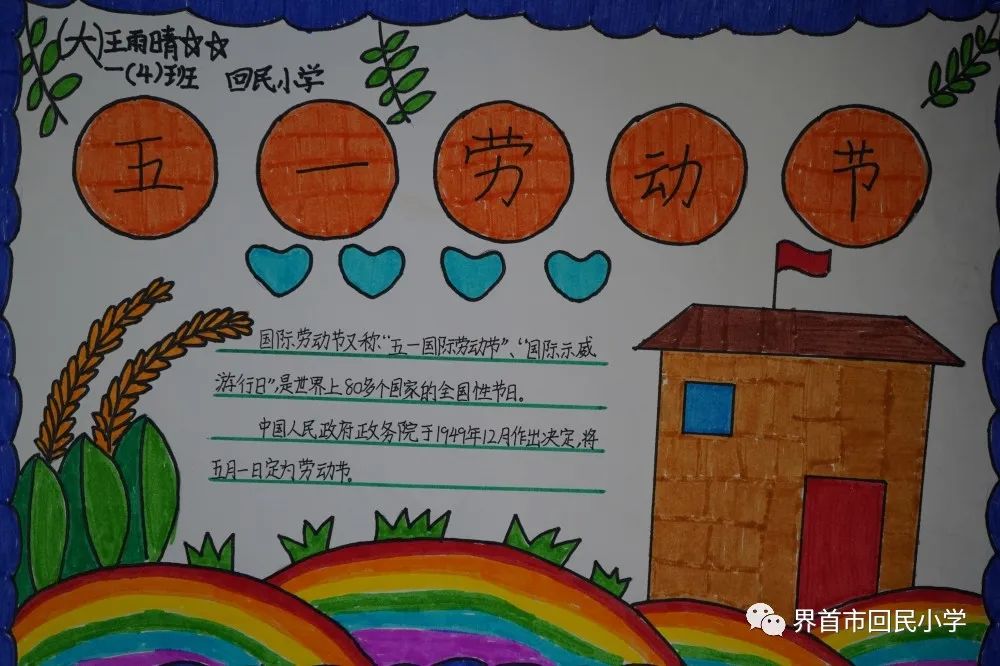 (大)王雨晴☆☆
一(4)班 回民小学
五一劳动节
国际劳动节又称“五一国际劳动节”、“国际示威
游行日”,是世界上80多个国家的全国性节日。
中国人民政府政务院于1949年12月作出决定,将
五月一日定为劳动节。
界首市回民小学